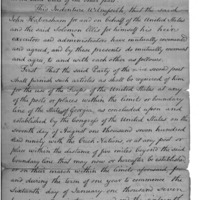 This Indenture Witnesseth that the said
John Habersham for and on behalf of the United States
and the said Solomon Ellis for himself his heirs
executors and administrators have mutually covenanted
and agreed, and by these presents do mutually covenant
and agree to and with each other as follows
First That the said Party of the
shall furnish such articles as shall be required of him
for the use of the Troops of the United States at any
of the posts or places within the limits or boundary
line of the State of Georgia, as concluded upon and
established by the Congress of the United States on the
seventh day of August one thousand seven hundred
and ninety with the Creek Nations, or at any post or
place within the distance of five miles beyond the said
boundary line that may now or hereafter be established
on that
and during the term of one year to commence the
sixteenth day of January one thousand seven